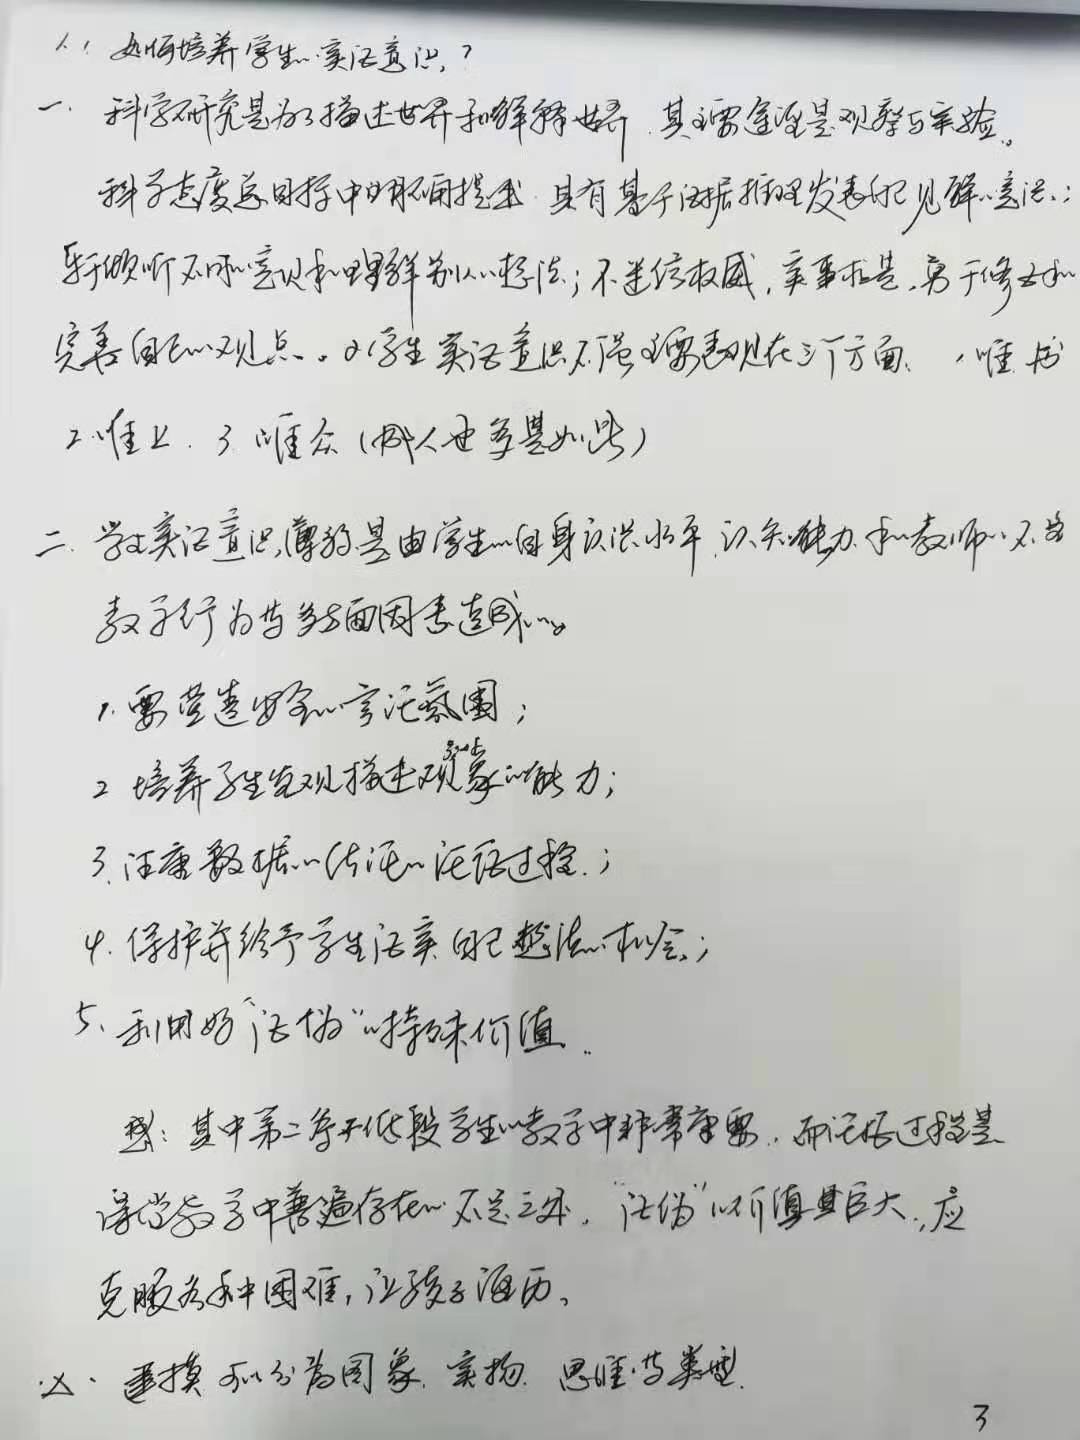 八、如何培养学生的实证意识？
一. 科学研究是为了描述世界和解释世界. 其主要途径是观察与实验。
科学态度总目标中明确提出. 具有基于证据推理发表自己见解的意识；
乐于倾听不同的意见和理解别人的想法；不迷信权威，实事求是，勇于修正和
完善自己的观点。小学生实证意识不强主要表现在三个方面、1唯书
2.唯上. 3.唯众（成人也多是如此）
二. 学生实证意识薄弱是由学生的自身认识水平.认知能力.和教师的不当
教学行为等多方面因素造成的。
1. 要营造安全的言论氛围；
2 培养学生客观描述现象的能力；
3.注重数据的论证过程；
4.保护并给予学生证实自己想法的机会；
5、利用好“证伪”的特殊价值.
我：其中第二条于低段学生的教学中非常重要. 而论证过程是
课堂教学中普遍存在的不足之处. “证伪”的价值甚巨大，应
克服各种困难，让孩子经历。
建模 可以分为图象. 实物. 思维等类型.
3